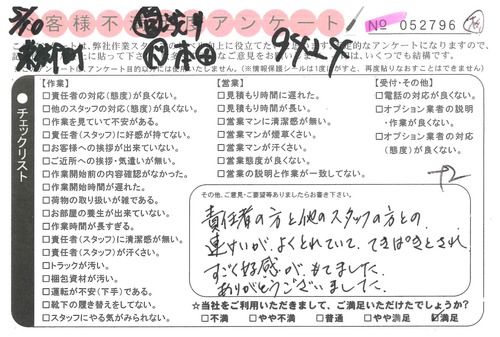 お客様不満足度アンケート
No 052796
チェックリスト
【作業】
□責任者の対応(態度)が良くない。
□他のスタッフの対応(態度)が良くない。
□作業を見ていて不安がある。
□責任者(スタッフ)に好感が持てない。
□お客様への挨拶が出来ていない。
□ご近所への挨拶・気遣いが無い。
□作業開始前の内容確認がなかった。
□作業開始時間が遅れた。
□荷物の取り扱いが雑である。
□お部屋の養生が出来ていない。
□作業時間が長すぎる。
□責任者(スタッフ)に清潔感が無い。
□責任者(スタッフ)が汗くさい。
□トラックが汚い。
□梱包資材が汚い。
□運転が不安(下手)である。
□靴下の履き替えをしてない。
□スタッフにやる気がみられない。
【営業】
□見積もり時間に遅れた。
□見積もり時間が長い。
□営業マンに清潔感が無い。
□営業マンが煙草くさい。
□営業マンが汗くさい。
□営業態度が良くない。
□営業の説明と作業が一致してない。
【受付・その他】
□電話の対応が良くない。
□オプション業者の説明
・作業が良くない。
□オプション業者の対応
(態度)が良くない。
その他、ご意見・ご要望等ありましたらお書き下さい。
責任者の方と他のスタッフの方との
連けいが、よくとれていて、てきぱきとされ
すごく好感が、もてました。
ありがとうございました。
☆当社をご利用いただきまして、ご満足いただけたでしょうか?
□不満 □やや不満 □普通 □やや満足 ☑満足